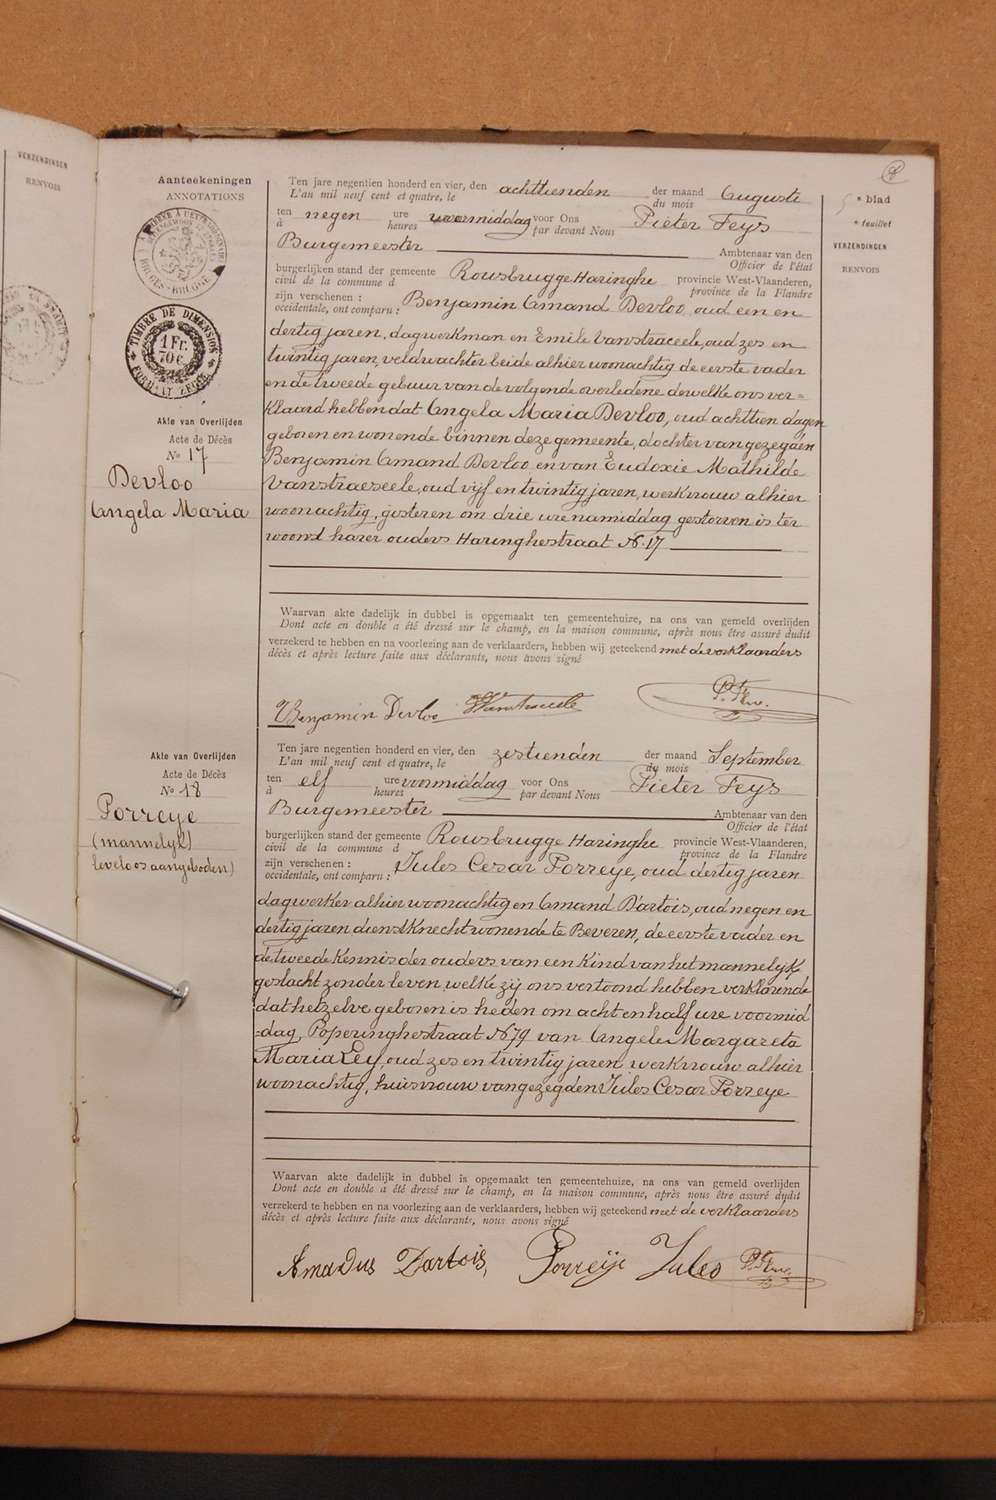 VERZENDINGEN
RENVOIS
Aanteekeningen
ANNOTATIONS
TIMBRE DE DIMENSION
1 Fr.
70 c.
Akte van Overlijden
Acte de Décès
No 17
Devloo
Angela Maria
Ten jare negentien honderd en vier, den achttienden der maand Auguste
L'an mil neuf cent et quatre, le du mois
ten negen ure voormiddag voor Ons Pieter Feys
à heures par devant Nous
Burgemeester Ambtenaar van den
Officier de l'état
burgerlijken stand der gemeente Rousbrugge Haringhe provincie West-Vlaanderen,
civil de la commune d province de la Flandre
zijn verschenen : Benjamin Amand Devloo, oud een en
occidentale, ont comparu :
dertig jaren, dagwerkman en Emile Vanstraceele, oud zes en
twintig jaren, veldwachter beide alhier woonachtig de eerste vader
en de tweede gebuur van de volgende overledene dewelke ons ver=
klaard hebben dat Angela Maria Devloo, oud achttien dagen
geboren en wonende binnen deze gemeente, dochter van gezegden
Benjamin Amand Devloo en van Eudoxie Mathilde
Vanstraeseele, oud vijf en twintig jaren, werkvrouw alhier
woonachtig, gisteren om drie ure namiddag gestorven is ter
woonst harer ouders Haringhestraat No 17
Waarvan akte dadelijk in dubbel is opgemaakt ten gemeentehuize, na ons van gemeld overlijden
Dont acte en double a été dressé sur le champ, en la maison commune, après nous être assuré dudit
verzekerd te hebben en na voorlezing aan de verklaarders, hebben wij geteekend met de verklaarders
décès et après lecture faite aux déclarants, nous avons signé
Benjamin Devloo
Akte van Overlijden
Acte de Décès
No 18
Porreye
(mannelijk)
leveloos aangeboden)
Ten jare negentien honderd en vier, den zestienden der maand September
L'an mil neuf cent et quatre, le du mois
ten elf ure voormiddag voor Ons Pieter Feys
à heures par devant Nous
Burgemeester Ambtenaar van den
Officier de l'état
burgerlijken stand der gemeente Rousbrugge Haringhe provincie West-Vlaanderen,
civil de la commune d province de la Flandre
zijn verschenen : Jules Cesar Porreye, oud dertig jaren
occidentale, ont comparu :
dagwerker alhier woonachtig en Amand D'artois, oud negen en
dertig jaren dienstknecht wonende te Beveren, de eerste vader en
de tweede kennis der ouders van een kind van het mannelijk
geslacht zonder leven welke zij ons vertoond hebben verklarende
dat hetzelve geboren is heden om acht en half ure voormid
=dag, Poperinghestraat No 79 van Angele Margareta
Maria Ley, oud zes en twintig jaren werkvrouw alhier
woonachtig, huisvrouw van gezegden Jules Cesar Porreye
Waarvan akte dadelijk in dubbel is opgemaakt ten gemeentehuize, na ons van gemeld overlijden
Dont acte en double a été dressé sur le champ, en la maison commune, après nous être assuré dudit
verzekerd te hebben en na voorlezing aan de verklaarders, hebben wij geteekend met de verklaarders
décès et après lecture faite aux déclarants, nous avons signé
Amadus Dartois, Porreije Jules
e blad
e feuillet
VERZENDINGEN
RENVOIS